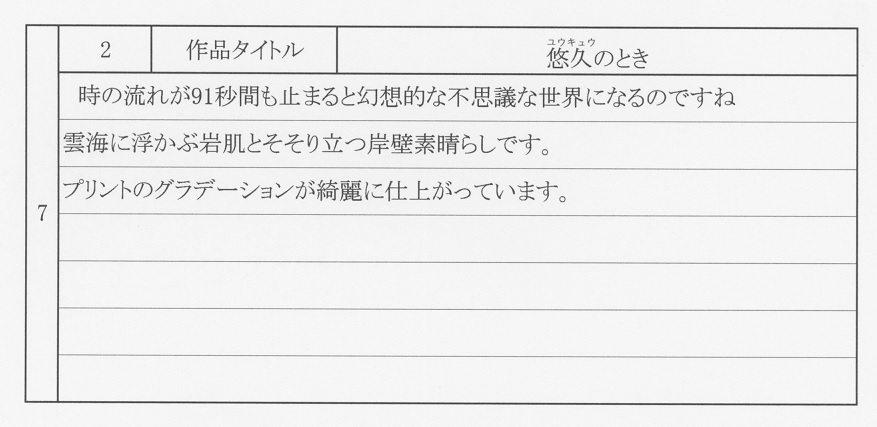 2 作品タイトル 悠久のとき
ユウキュウ
時の流れが91秒間も止まると幻想的な不思議な世界になるのですね
雲海に浮かぶ岩肌とそそり立つ岸壁素晴らしです。
プリントのグラデーションが綺麗に仕上がっています。
7